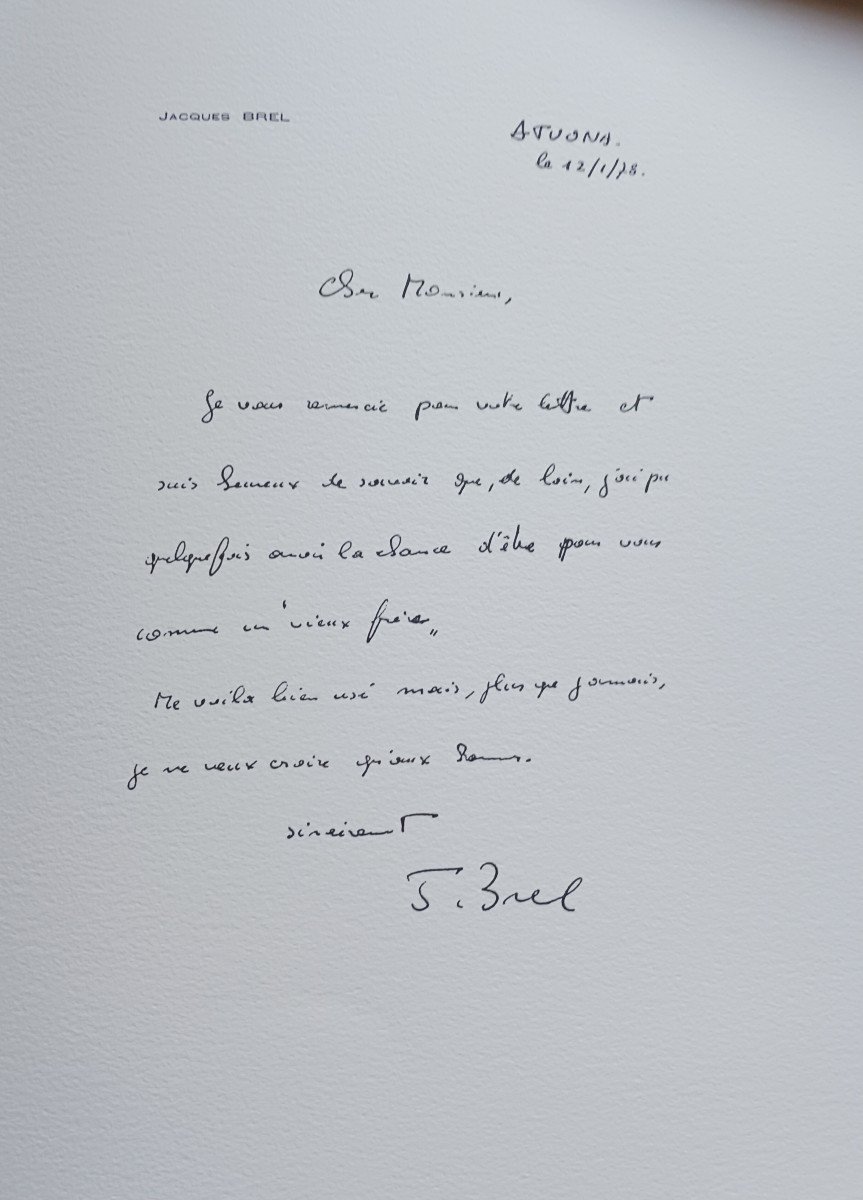 JACQUES BREL
ATUONA.
le 12/1/78.
Cher Monsieur,
Je vous remercie pour votre lettre et
suis heureux de savoir que, de loin, j'ai pu
quelquefois avoir la chance d'être pour vous
comme un "vieux frère"
Me voilà bien usé mais, plus que jamais,
je ne veux croire qu'aux
sincèrement
J. Brel